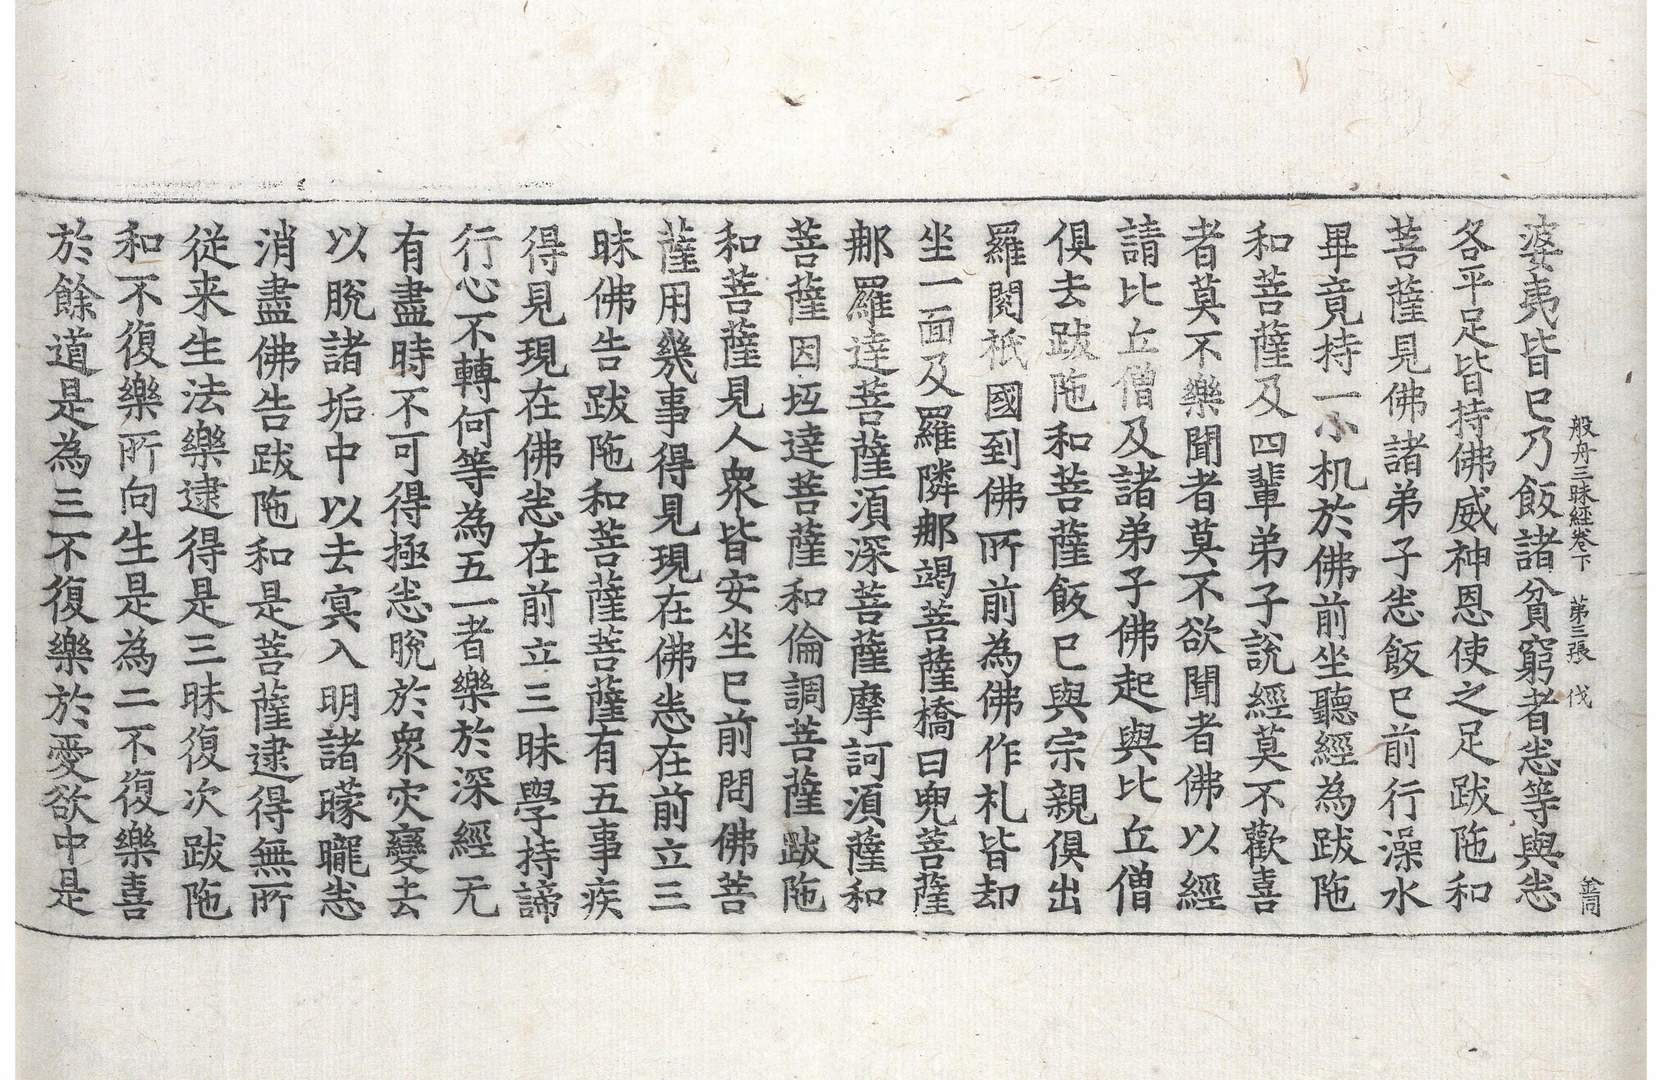 般舟三昧經卷下　第三張　伐
金同
婆夷皆已乃飯諸貧窮者悉等與悉
各平足皆持佛威神恩使之足跋陁和
菩薩見佛諸弟子悉飯已前行澡水
畢竟持一小机於佛前坐聽經為跋陁
和菩薩及四輩弟子說經莫不歡喜
者莫不樂聞者莫不欲聞者佛以經
請比丘僧及諸弟子佛起與比丘僧
俱去跋陁和菩薩飯已與宗親俱出
羅閱祇國到佛所前為佛作札皆却
坐一面及羅隣那竭菩薩橋曰兜菩薩
那羅達菩薩須深菩薩摩訶須薩和
菩薩因坻達菩薩和倫調菩薩跋陁
和菩薩見人衆皆安坐已前問佛菩
薩用幾事得見現在佛悉在前立三
昧佛告跋陁和菩薩菩薩有五事疾
得見現在佛悉在前立三昧學持諦
行心不轉何等為五一者樂於深經无
有盡時不可得極悉脫於衆灾變去
以脫諸垢中以去冥入明諸曚曨悉
消盡佛告跋陁和是菩薩逮得無所
從来生法樂逮得是三昧復次跋陁
和不復樂所向生是為二不復樂喜
於餘道是為三不復樂於愛欲中是